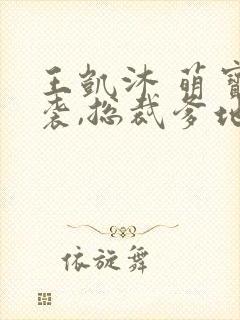 王凯沐 萌寶
袭,总裁爹地
依旋舞